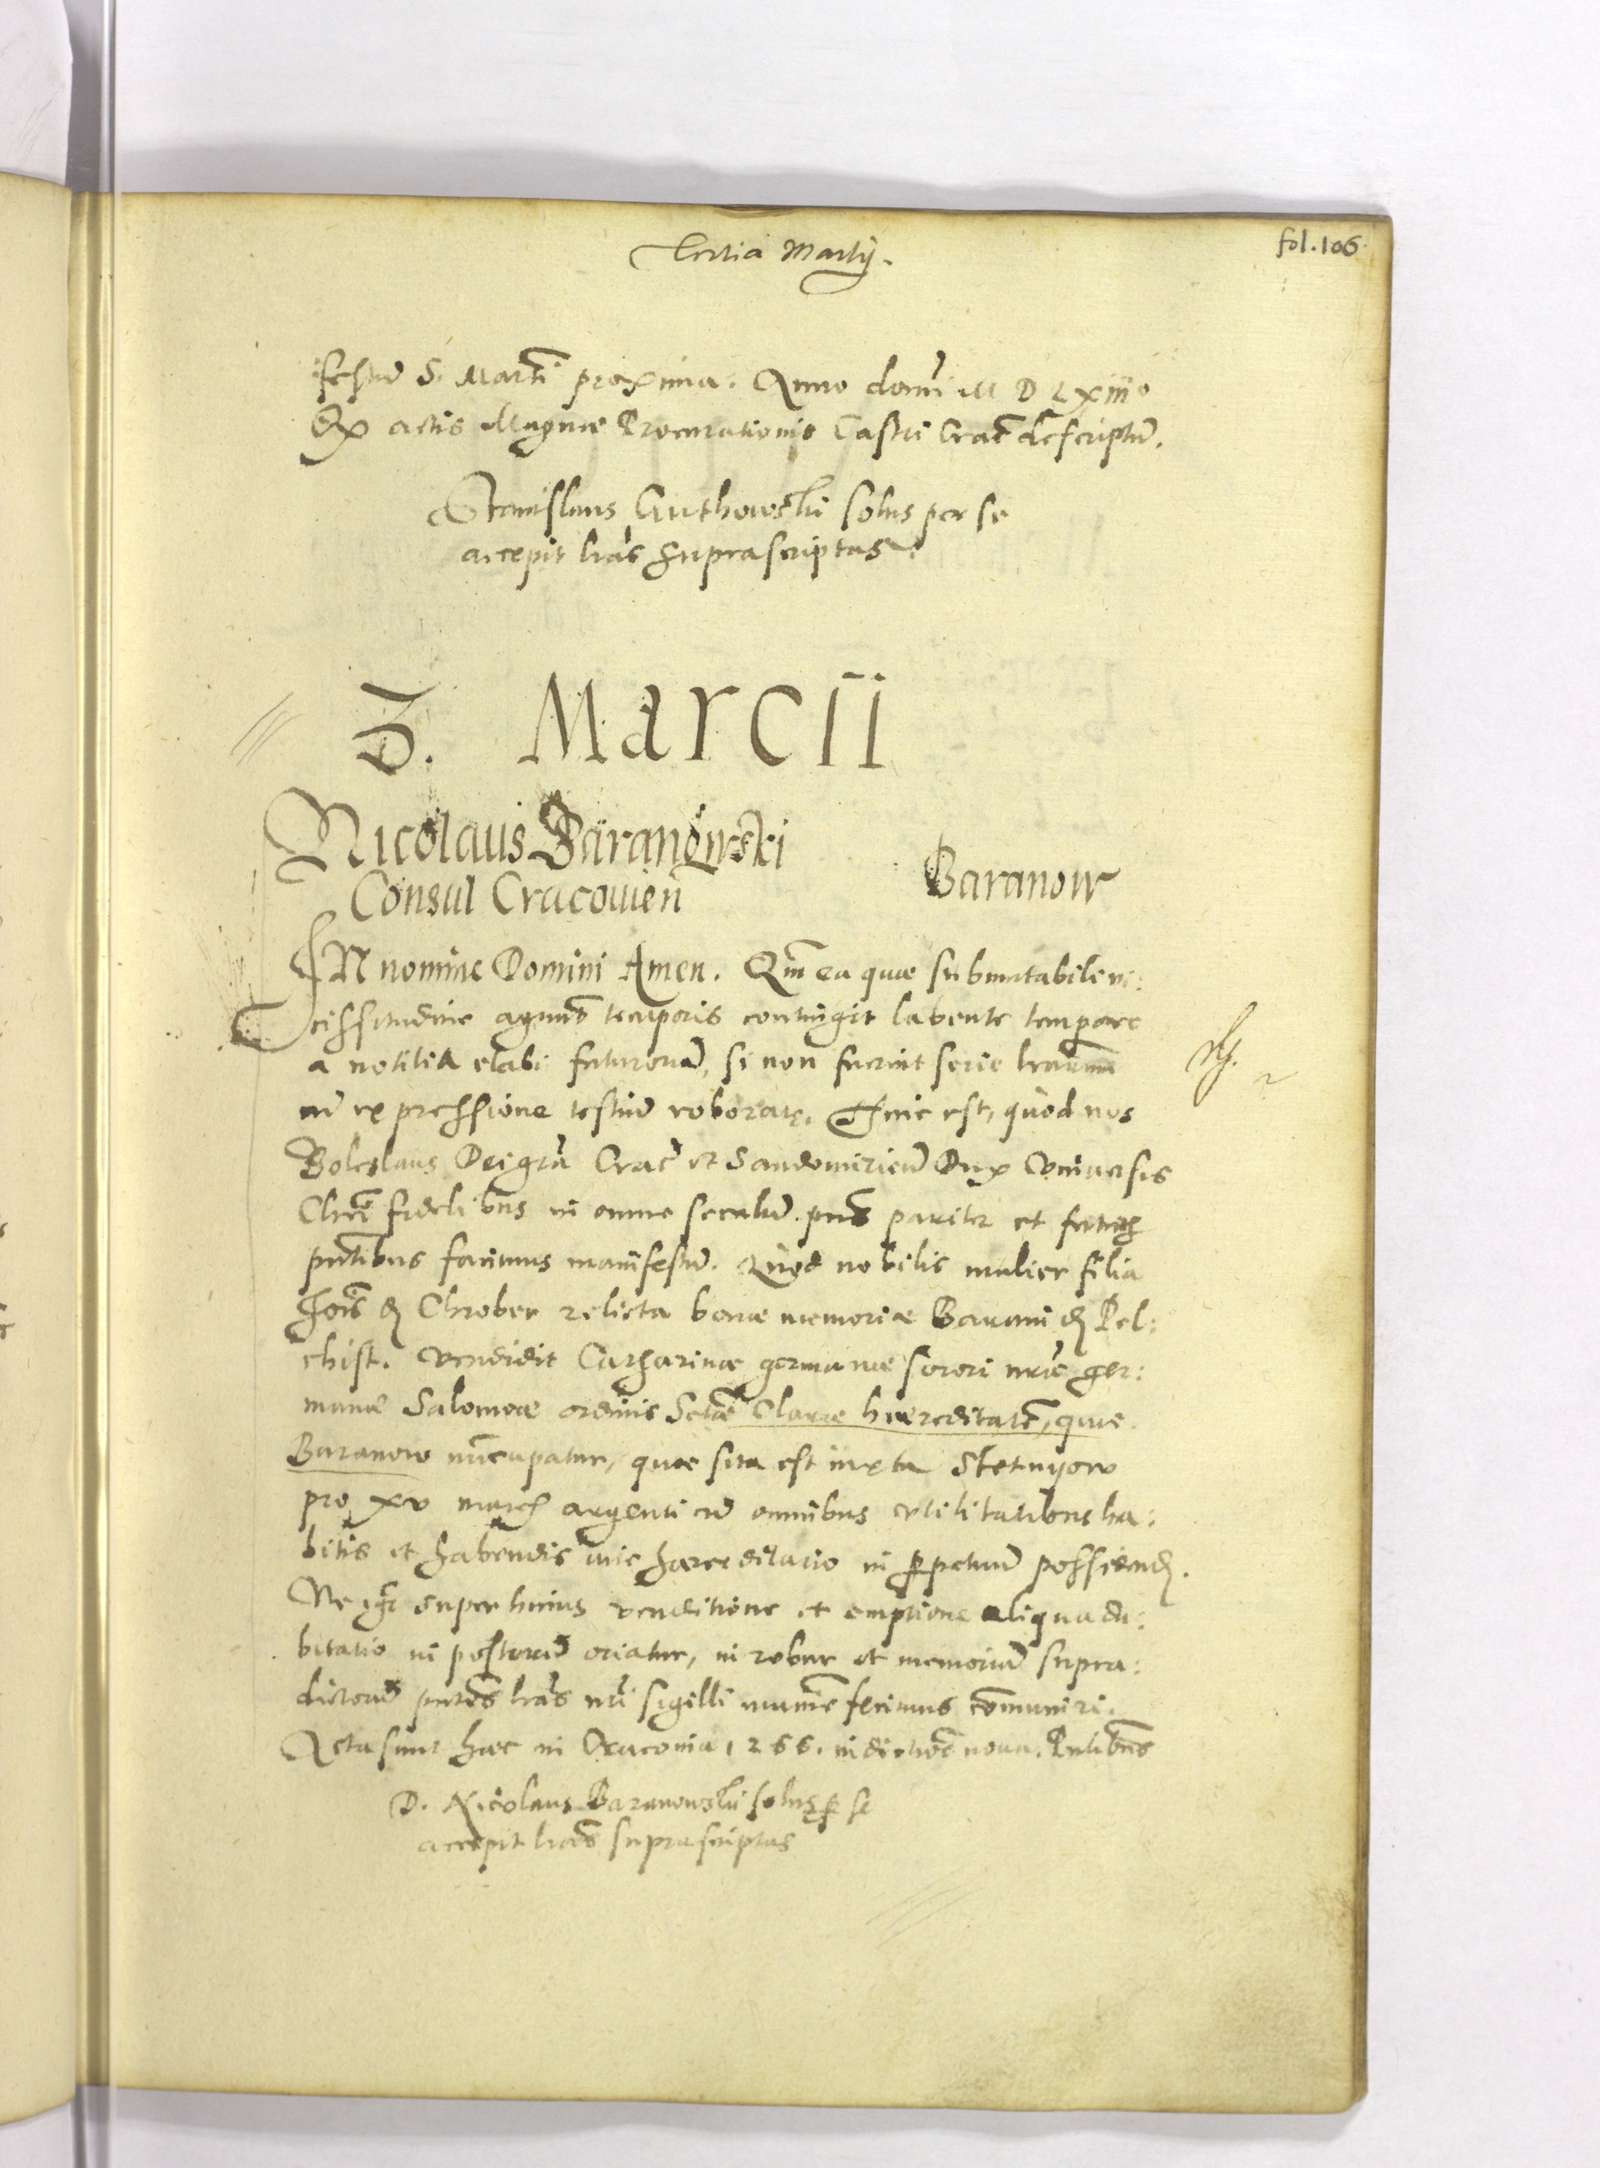 Tertia Martij.
fol. 106
festum S. Martini proxima. Anno domi M D LXiii°
Ex actis Magnae Procurationis Castri Crac descriptum.
Stanislaus solus per se
accepit lras suprascriptas.
3. Marcii
Nicolaus Baranowski
Consul Cracouien
Baranow
IN nomine Domini Amen. Qm ea quae sub mutabile vi:
cissitudine agunt temporis contingit labente tempore
a notitia elabi futurorum, si non fuerint serie lrarum
cum expressione testium roboratę. Hinc est, quod nos
Boleslaus Dei gra Crac et Sandomirien Dux Vniuersis
Chri fidelibus in omne seculum pns pariter et futur
pntibus facimus manifestum. Quod nobilis mulier filia
Jois de Chrober relicta bonae memoriae Barani de Pel:
chist. Vendidit Catharinae germanae sorori nrae ger:
manae Salomeae ordinis Sctae Clarae haereditatem, quae
Baranow nucupatur, quae sita est iuxta Stetnyow
pro xv march argenti cum omnibus vtilitatibus ha:
bitis et habendis iure haereditario in perpetuum possidend.
Ne igr super huius venditione et emptione aliqua du:
bitatio in posterum oriatur, in robur et memoriam supra:
dictorum pntes lras nri sigilli munime fecimus comuniri.
Acta sunt haec in Cracouia 1266. indictioe nona. Pntibus
D. Nicolaus Baranowski solus per se
accepit lras suprascriptas